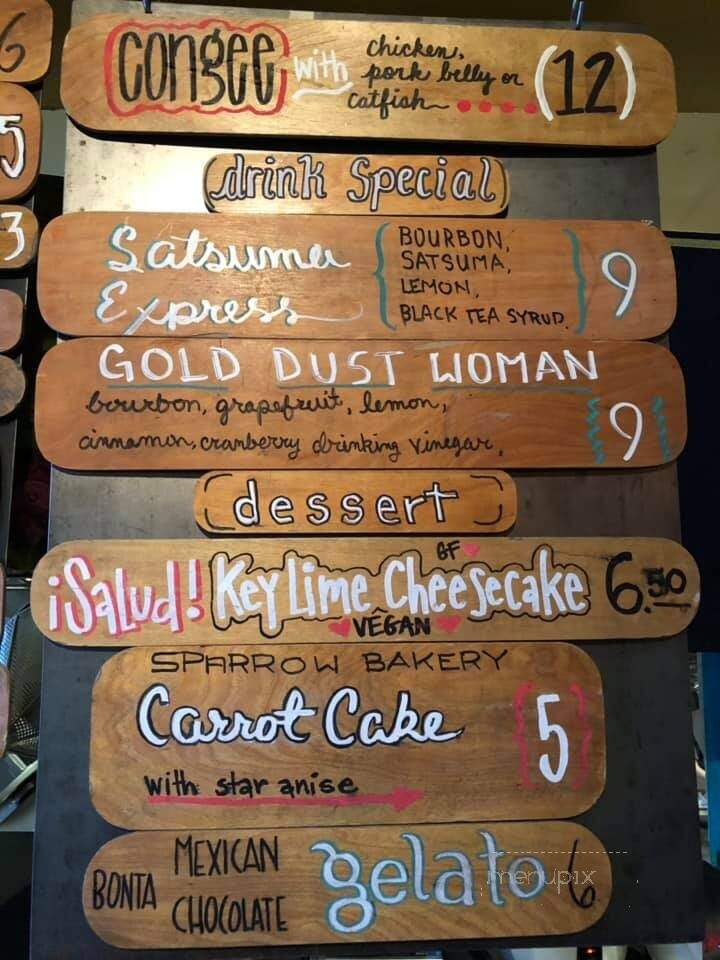 6
5
3
congee with chicken,
pork belly or
catfish .... (12)
drink Special
Satsuma
Express
BOURBON,
SATSUMA,
LEMON,
BLACK TEA SYRUP
9
GOLD DUST WOMAN
bourbon, grapefruit, lemon,
cinnamon, cranberry drinking vinegar,
9
dessert
GF
¡Salud! Key Lime Cheesecake 6.50
VEGAN
SPARROW BAKERY
Carrot Cake {5}
with star anise
BONTA MEXICAN
CHOCOLATE
gelato 6
menupix